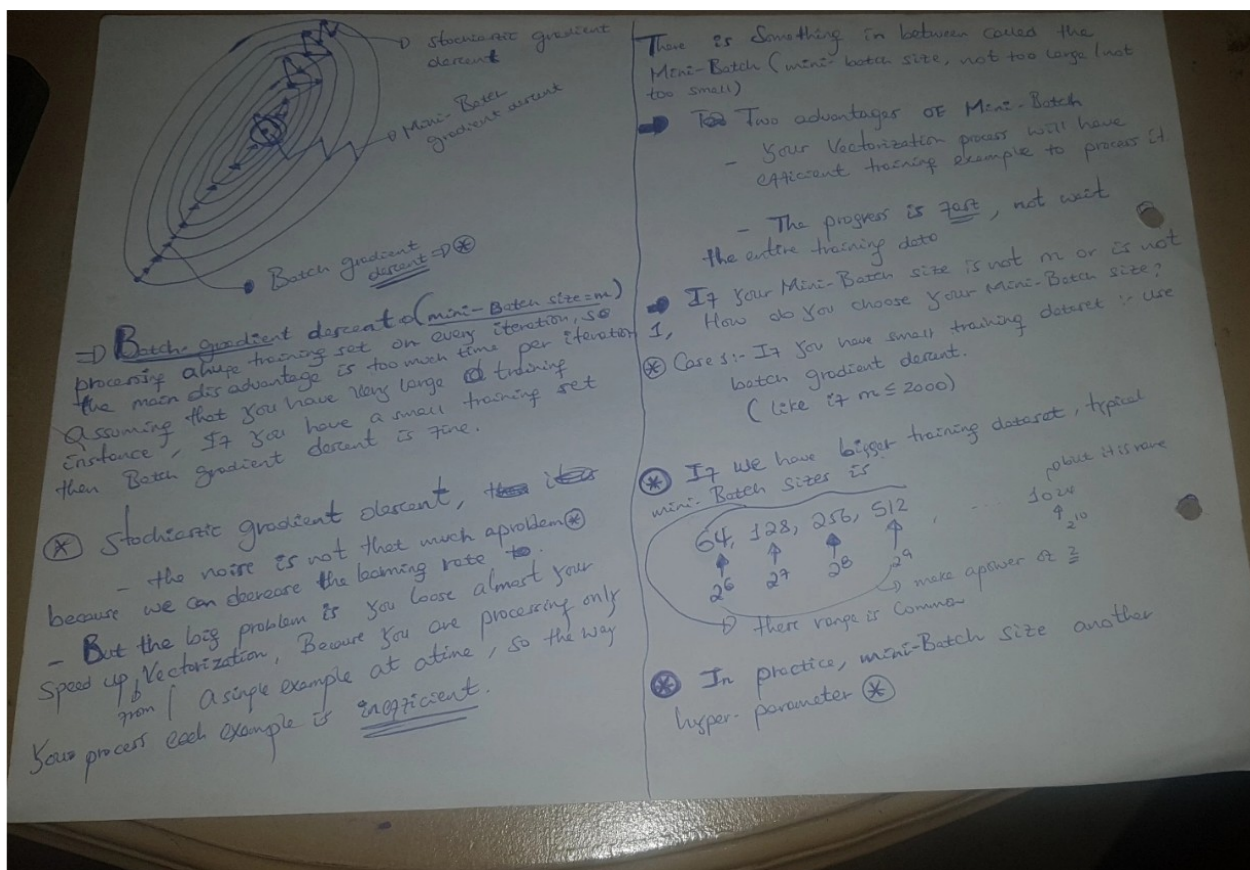 stochiastic gradient
descent
Mini-Batch
gradient descent
Batch gradient
descent =D *
=D Batch gradient descent (mini-Batch size=m)
processing a huge training set on every iteration, so
the main disadvantage is too much time per iteration
assuming that you have very large training
instance, If you have a small training set
then Batch gradient descent is fine.
* Stochiastic gradient descent,
- the noise is not that much a problem *
because we can decrease the learning rate
- But the big problem is you loose almost your
speed up from Vectorization, Because you are processing only
a single example at atime, so the way
Your process each example is inefficient.
There is Something in between called the
Mini-Batch (mini-batch size, not too large/not
too small)
Two advantages of Mini-Batch
- Your Vectorization process will have
efficient training example to process it
- The progress is fast, not wait
the entire training data
If your Mini-Batch size is not m or is not
1, How do you choose your Mini-Batch size?
* Case 1:- If you have small training dataset :- use
batch gradient descent.
(like if m ≤ 2000)
* If we have bigger training dataset, typical
mini-Batch sizes is
but it is rare
64, 128, 256, 512, ... 1024
2^6 2^7 2^8 2^9 2^10
make apower of 2
there range is Common
* In practice, mini-Batch size another
hyper-parameter *